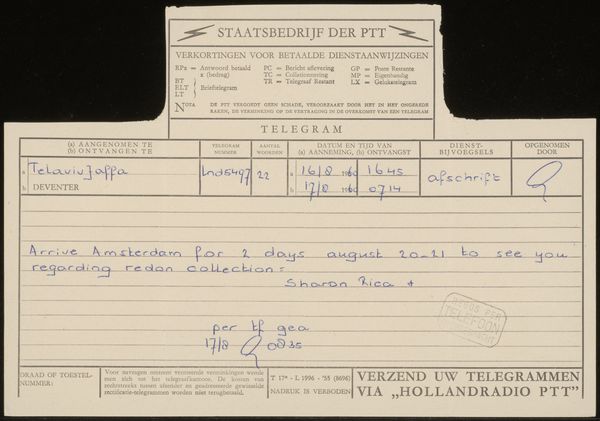 STAATSBEDRIJF DER PTT
VERKORTINGEN VOOR BETAALDE DIENSTAANWIJZINGEN
RPx = Antwoord betaald x (bedrag)
BT
ELT
LT
} Brieftelegram
PC = Bericht aflevering
TC = Collationnering
TR = Telegraaf Restant
GP = Poste Restante
MP = Eigenhandig
LX = Gelukstelegram
NOTA DE PTT VERGOEDT GEEN SCHADE, VEROORZAAKT DOOR HET IN HET ONGEREDE
RAKEN, DE VERMINKING OF DE VERTRAGING IN DE OVERKOMST VAN EEN TELEGRAM
TELEGRAM
(a) AANGENOMEN TE
(b) ONTVANGEN TE
TELEGRAM NUMMER
AANTAL WOORDEN
DATUM EN TIJD VAN
(a) AANNEMING, (b) ONTVANGST
DIENST-
BIJVOEGSELS
OPGENOMEN
DOOR
a Telaviv Jaffa
b DEVENTER
lnd5497
22
a 16/8 1960 1645
b 17/8 1960 0714
afschrift
Arrive Amsterdam for 2 days august 20-21 to see you
regarding redon collection =
Sharon Rica +
per tf gea
17/8 0835
PER
TELEFOON
DRAAD OF TOESTEL-
NUMMER:
Voor navragen omtrent vermoede verminkingen wende
men zich tot het telegraafkantoor. De kosten van
rechtstreeks tussen afzender en geadresseerde gewisselde
rectificatie-telegrammen worden niet terugbetaald.
T 17a - L 1996 - '55 (8696)
NADRUK IS VERBODEN
VERZEND UW TELEGRAMMEN
VIA „HOLLANDRADIO PTT"